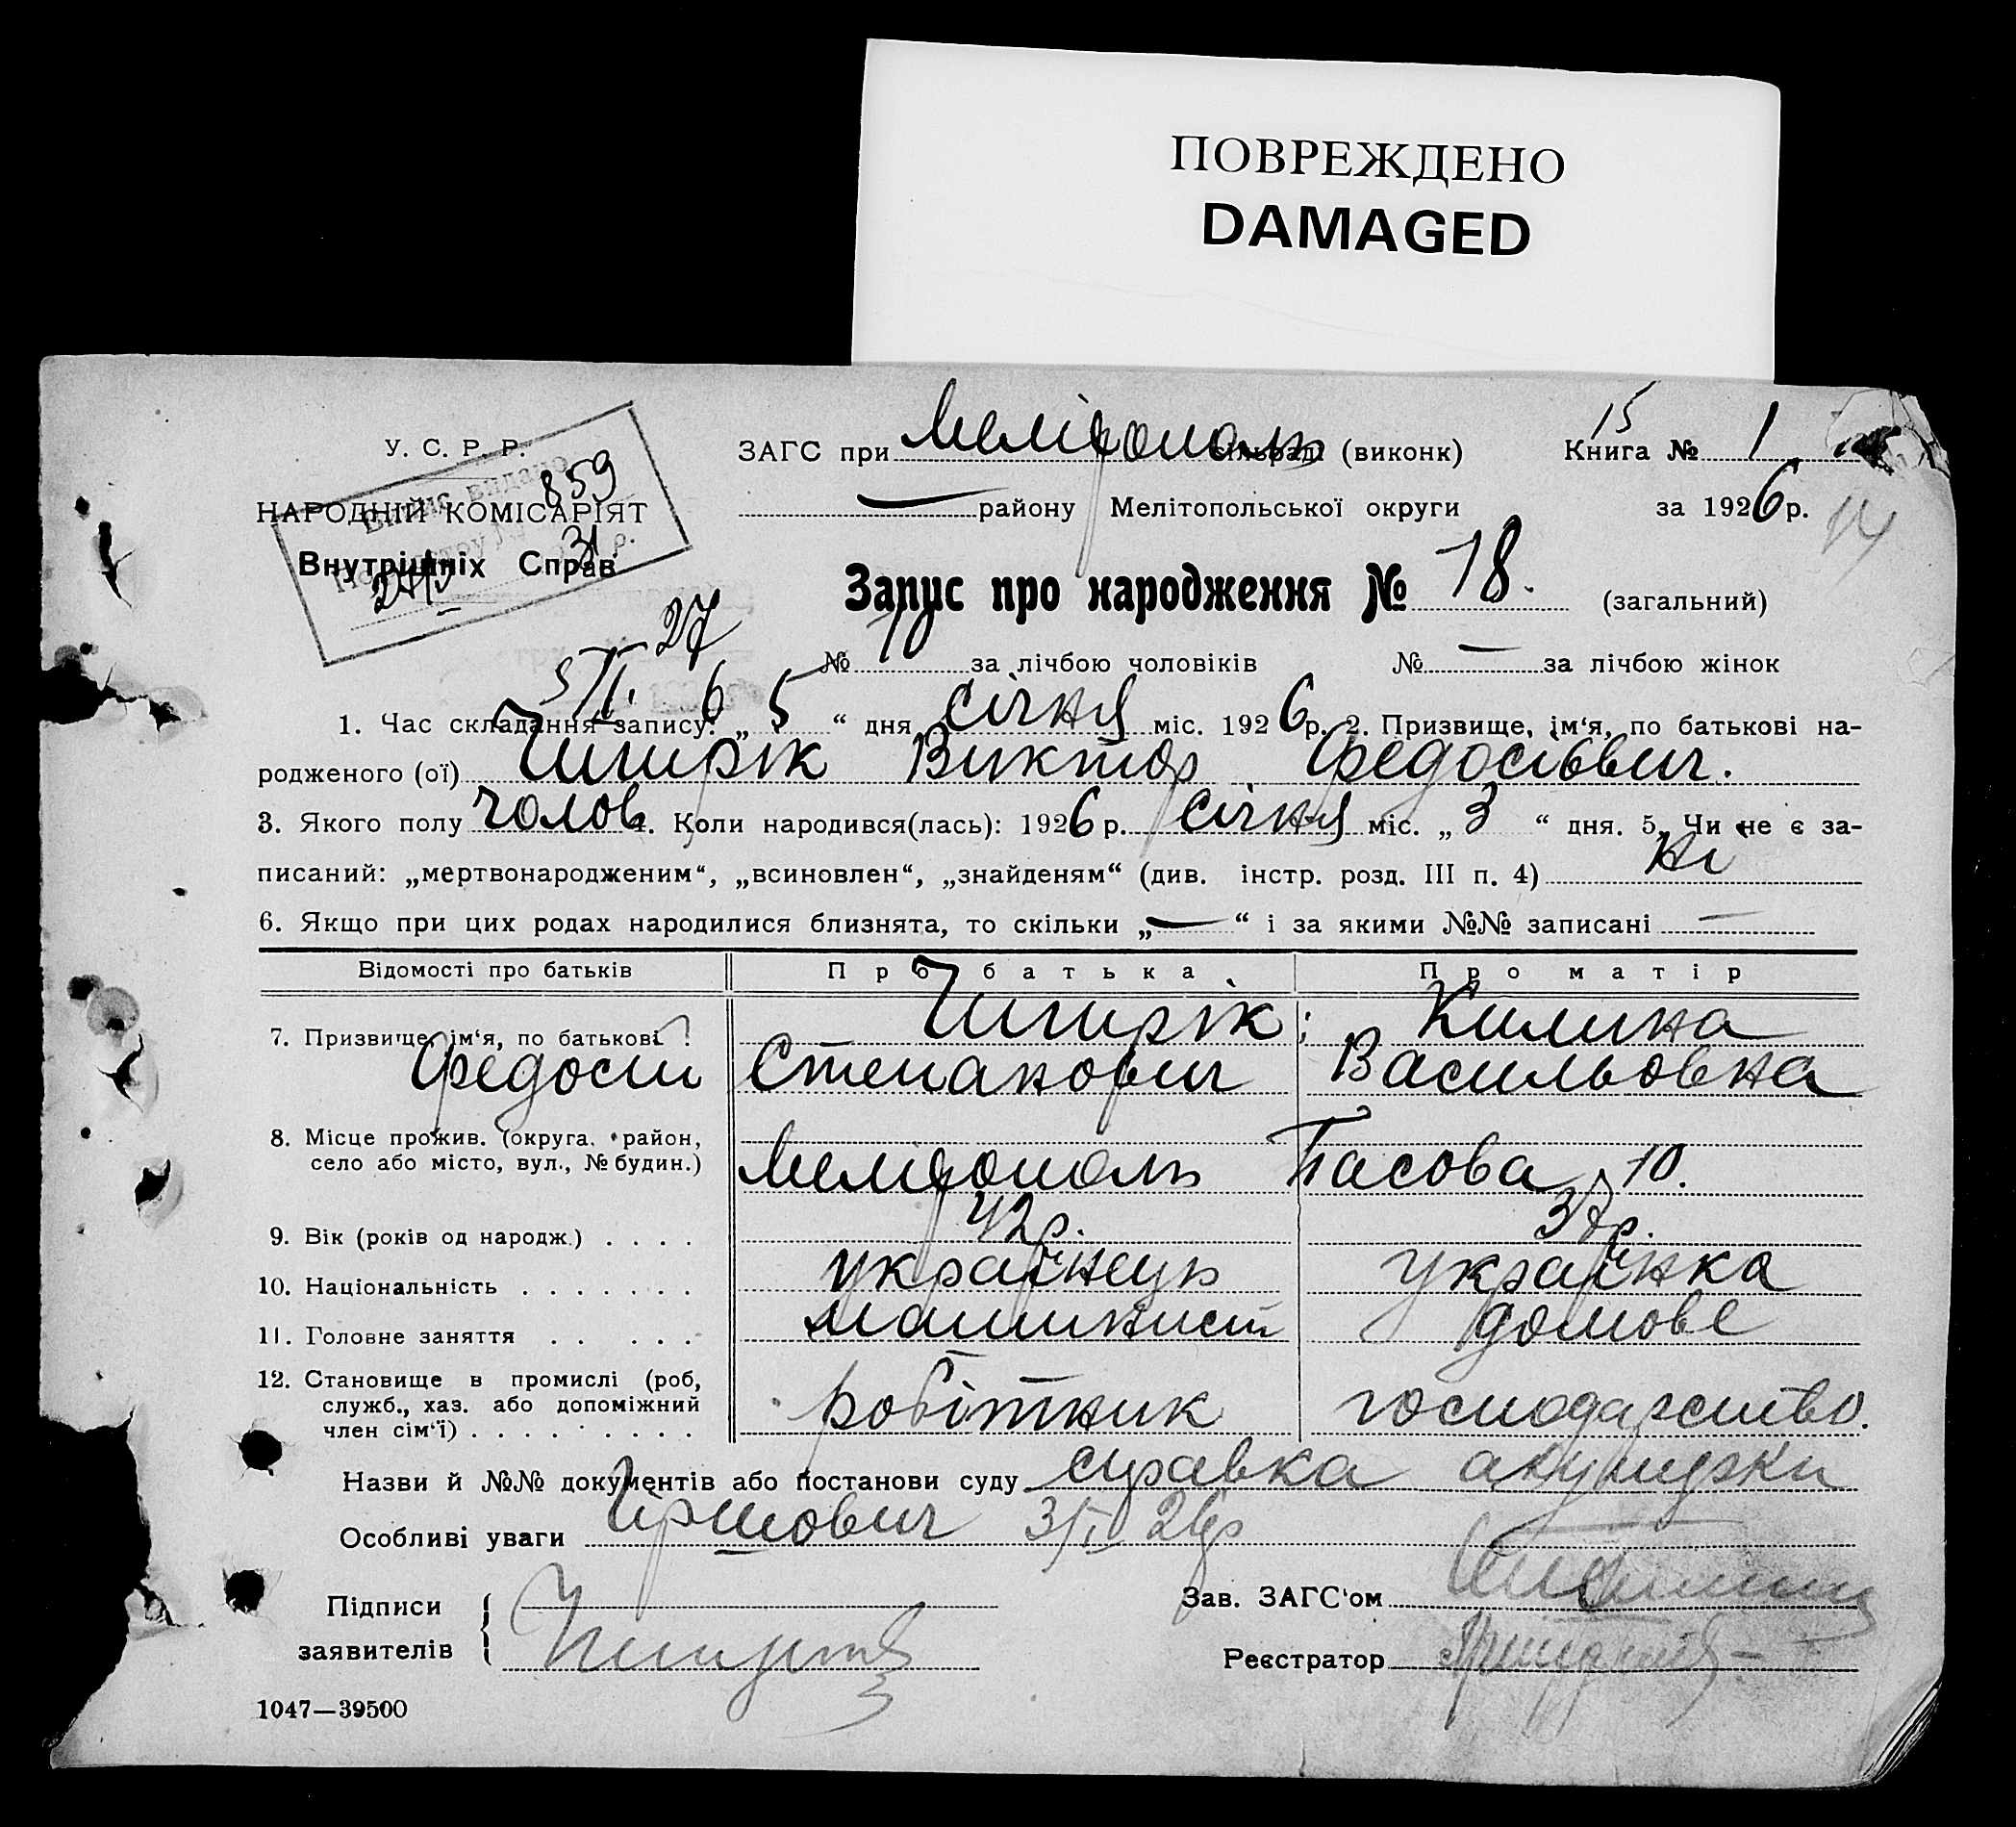 ПОВРЕЖДЕНО
DAMAGED
У. С. Р. Р. ЗАГС при Мелітополь сільраді (виконк) Книга № 1
15
НАРОДНІЙ КОМІСАРІЯТ району Мелітопольської округи за 1926 р.
14
Внутрішніх Справ
Випис видано
859
31 р.
Запис про народження № 18. (загальний)
27
№ 10 за лічбою чоловіків № — за лічбою жінок
1. Час складання запису: „ 5 “ дня січня міс. 1926 р. 2. Призвище, ім‘я, по батькові на-
родженого (ої) Чигирік Виктор Федосієвич.
3. Якого полу чолов. 4. Коли народився(лась): 1926 р. січня міс. „ 3 “ дня. 5. Чи не є за-
писаний: „мертвонародженим“, „всиновлен“, „знайденям“ (див. інстр. розд. III п. 4) ні
6. Якщо при цих родах народилися близнята, то скільки „ — “ і за якими №№ записані —
Відомості про батьків Про батька Про матір
7. Призвище, ім‘я, по батькові Чигирік Килина
Федосій Степанович Васильовна
8. Місце прожив. (округа, район,
село або місто, вул., № будин.) Мелітополь Басова 10.
9. Вік (років од народж.) . . . . 42 р. 37 р.
10. Національність . . . . . . . українець українка
11. Головне заняття . . . . . машинист домове
12. Становище в промислі (роб,
служб., хаз. або допоміжний робітник господарство.
член сім‘ї) . . . . . . . . .
Назви й №№ документів або постанови суду справка акушерки
Особливі уваги Гіршович 3/I 26 р
Підписи
Зав. ЗАГС‘ом
заявителів
Реєстратор
1047—39500